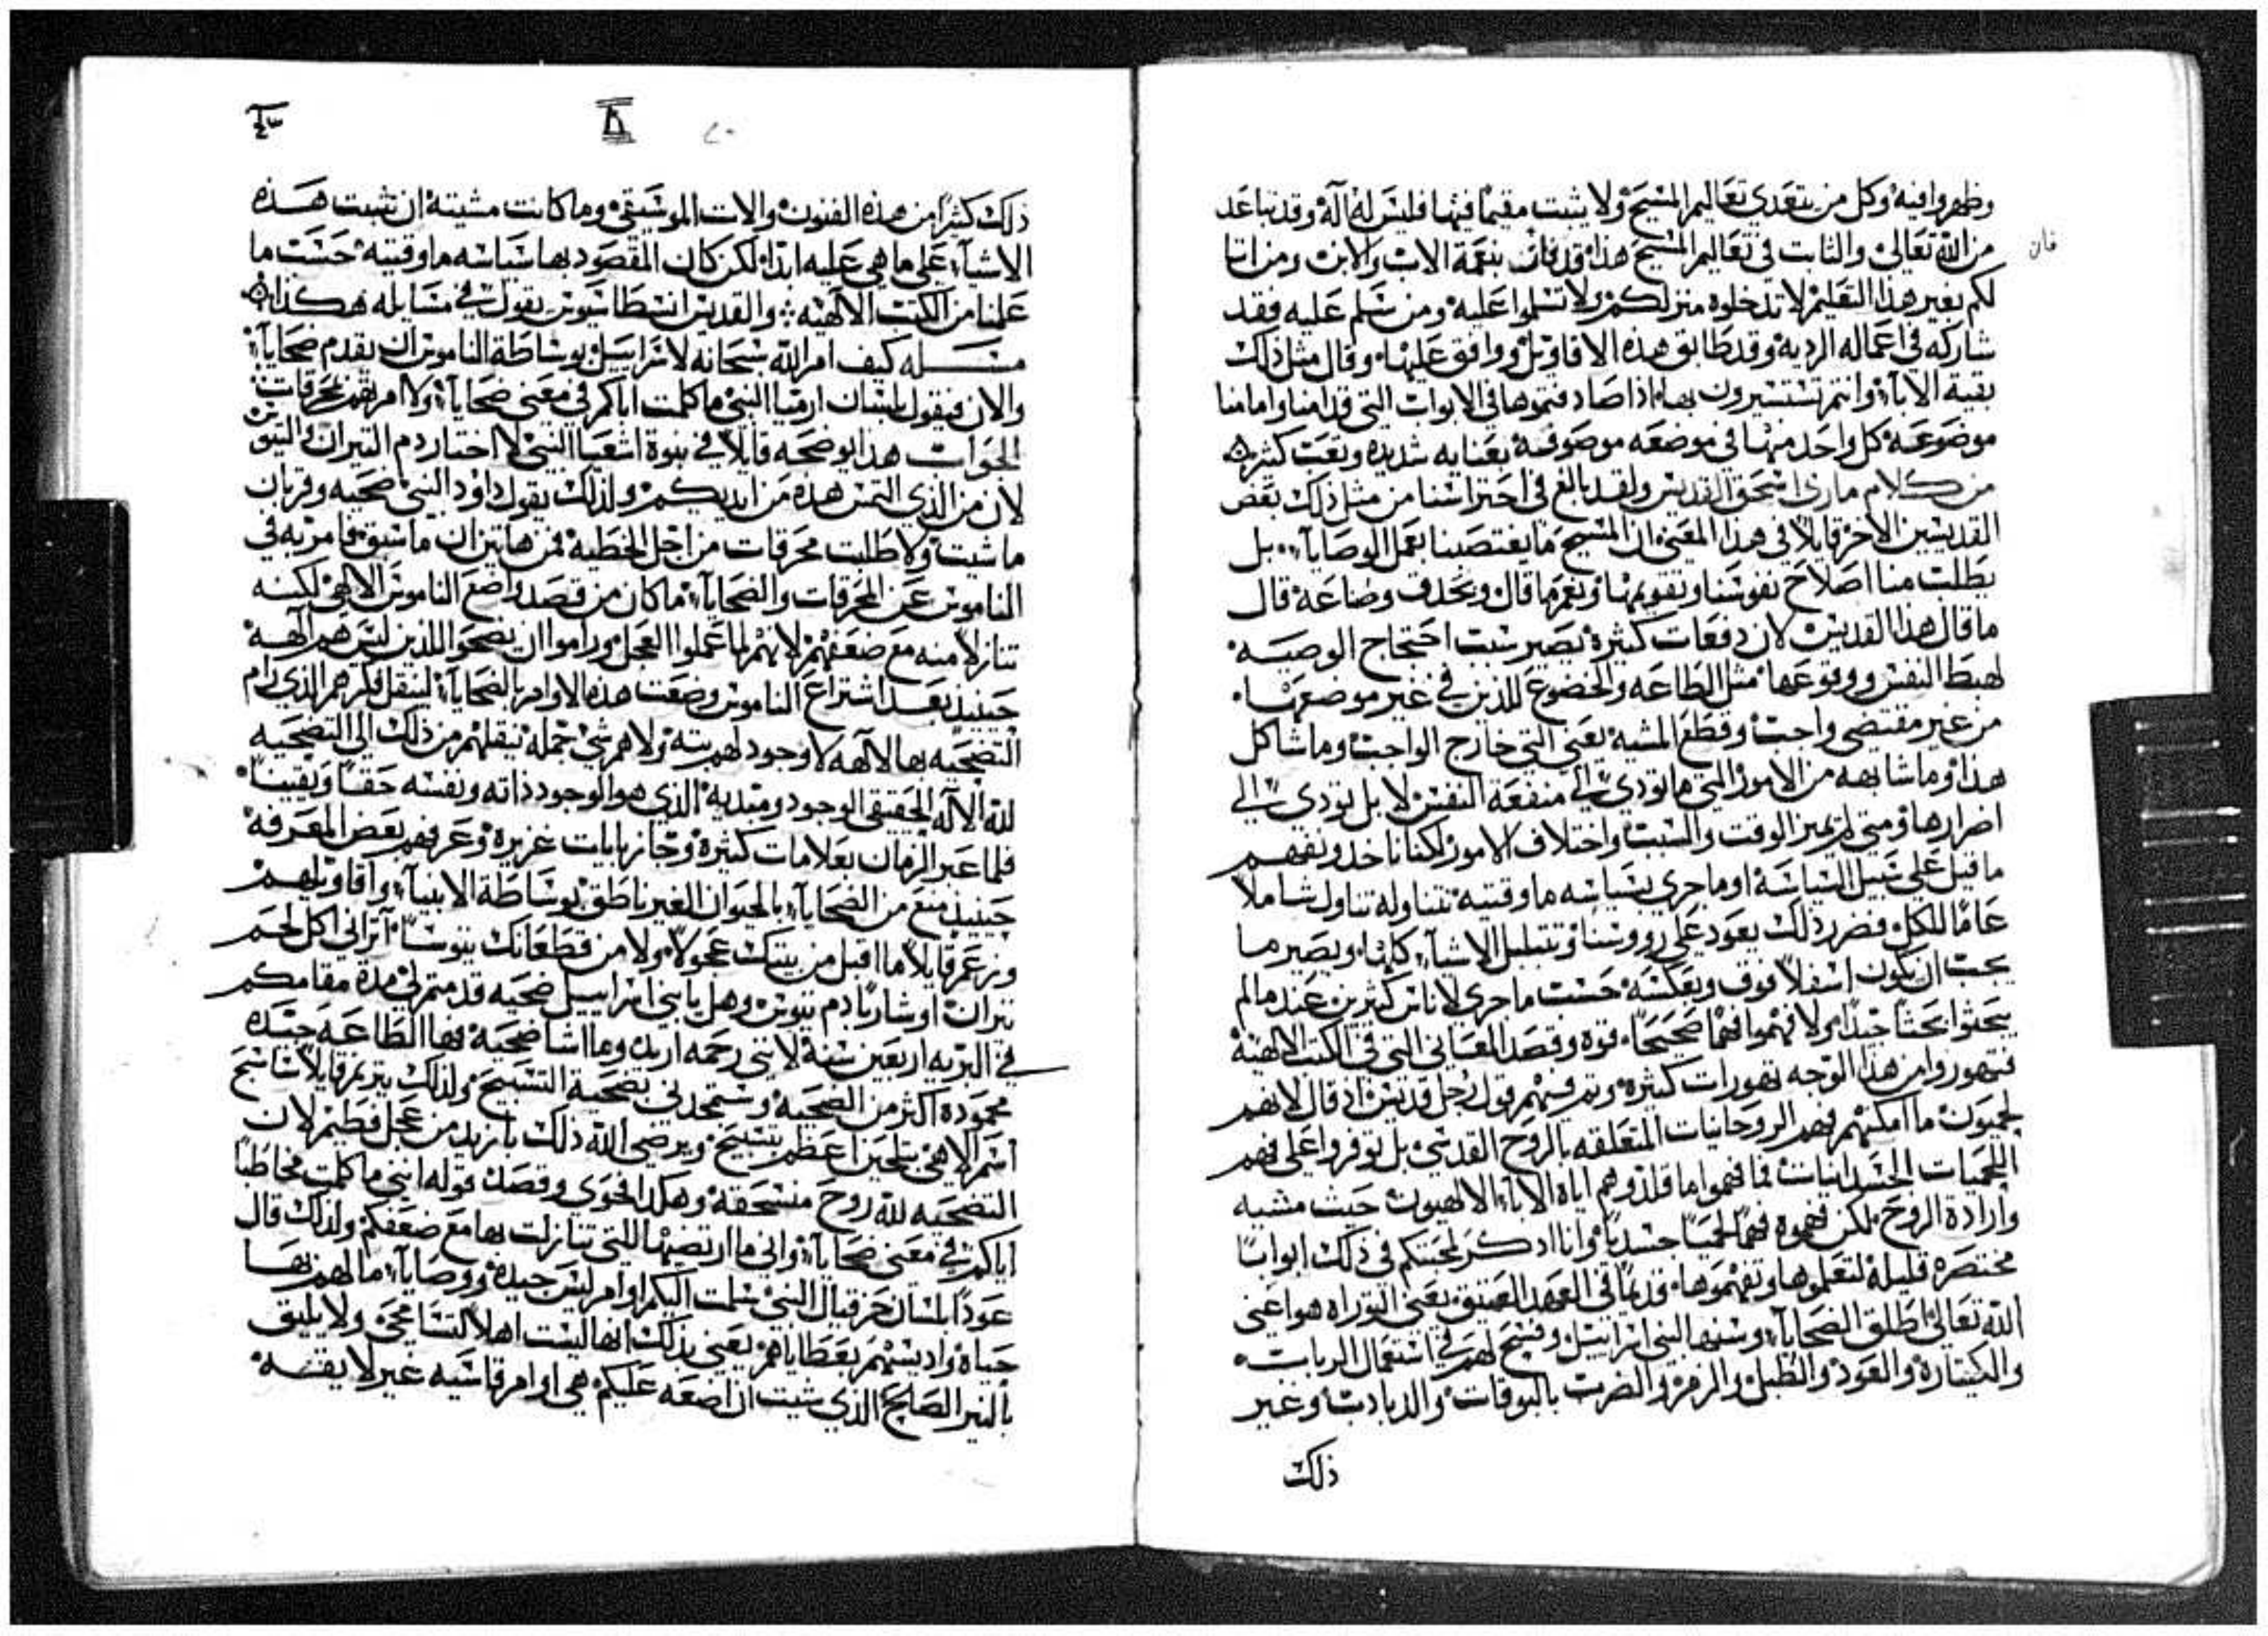 وظهروا فيه وكل من يتعدى تعاليم المسيح ولا يثبت مقيمًا فيها فليس له اله وقد تباعد
من الله تعالى والثابت في تعاليم المسيح هذا قد فاز بنعمة الاب والابن ومن اتا
فان
لكم بغير هذا التعليم لا تدخلوه منزلكم ولا تسلموا عليه ومن سلم عليه فقد
شاركه في اعماله الردية وقد طابق هذه الاقاويل ووافق عليها وقال مثل ذلك
بقية الابآء وانتم تستسيرون بها اذا صادفتموها في الابواب التي قدامنا وامامنا
موضوعة كل واحد منها في موضعه موصوفة بعنايه شديده وتعب كثير
من كلام ماري اسحق القديس ولقد بالغ في احتراسنا من مثل ذلك بعض
القديسين الاخر قايلاً في هذا المعنى ان المسيح ما يغتصبنا بعمل الوصايآء بل
يطلب منا اصلاح نفوسنا وتقويمها ونعم ما قال وبحذق وضاعة قال
ما قال هذا القديس لان دفعات كثيرة يصير سبب احتجاج الوصية
لهبط النفس ووقوعها مثل الطاعه والخضوع للذين في غير موضعها
من غير مقتضى واجب وقطع المشيه يعني التي خارج الواجب وما شاكل
هذا وما شابهه من الامور التي ما تودي الى منفعة النفس لا بل تودي الى
اضرارها ومتى لم يميز الوقت والسبب واختلاف الامور لكننا ناخد ونفهم
ما قيل على سبيل السياسة او ما جرى بسياسه ما وقتية نتناوله تناول شاملاً
عامًا للكل فضرر ذلك يعود على رووسنا وتتبلبل الاشيآء كلها ويصير ما
يجب ان يكون اسفلاً فوق وبعكسه حسب ما جرى لاناس كثيرين عند ما لم
يبحثوا بحثًا جيدًا ولا فهموا فهمًا صحيحًا قوة وقصد المعاني التي في الكتب الالهية
فتهوروا من هذا الوجه تهورات كثيرة وتم فيهم قول رجل قديس اذ قال لانهم
لحميون ما امكنهم فهم الروحانيات المتعلقه بالروح القدس بل توفروا على فهم
اللحميات الجسدانيات فما فهموا ما قلدوهم اياه الابآء الالاهيون حيث مشيه
وارادة الروح لكن فهموه فهمًا لحميًا جسديًا وانا ادكر لمحبتكم في ذلك ابوابًا
مختصره قليلة لتعلموها وتفهموها قديمًا في العهد العتيق يعني التوراه هو اعني
الله تعالى اطلق الضحايآء وسنها لبني اسراييل وفسح لهم في استعمال الربابت
والكيتاره والعود والطبل والزمر والضرب بالبوقات والدبادب وغير
ذلك
ذلك كثيرًا من هذه الفنون والات الموسيقى وما كانت مشيته ان تثبت هذه
الاشيآء على ما هي عليه ابدًا لكن كان المقصود بها سياسه ما وقتية حسب ما
علمنا من الكتب الالهية والقديس انسطاسيوس يقول في مسايله هكذا
مسله كيف امر الله سبحانه لاسراييل بوساطة الناموس ان يقدم ضحايآء
والان فيقول بلسان ارميا النبي ما كلمت اباكم في معنى ضحايآء ولا امرتهم بمحرقات
الجواب هذا يوضحه قايلاً في نبوة اشعيا النبي لا اختار دم التيران والتيوس
لان من الذي التمس هذه من ايديكم ولذلك يقول داود النبي ضحيه وقربان
ما شيت ولا طلبت محرقات من اجل الخطيه فمن هاتين ان ما سبق فامر به في
الناموس عن المحرقات والضحايآء ما كان من قصد واضع الناموس الالاهي لكنه
تنازلاً منه مع ضعفهم لانهم لما عملوا العجل وراموا ان يضحوا للذين ليس هم الهة
حينيذ بعد اشتراع الناموس وضعت هذه الاوامر بالضحايآء لينقل فكرهم الذي رام
التضحيه بها لالهه لا وجود لهم بته ولا هم شي جمله بنقلهم من ذلك الى التضحيه
لله الاله الحقيقي الوجود ومبديه الذي هو الوجود ذاته ونفسه حقًا ويقينًا
فلما عبر الزمان بعلامات كثيرة وجاز بايات غزيرة وعرفهم بعض المعرفة
حينيذ منع من الضحايآء بالحيوان الغير ناطق بوساطة الانبيآء واقاويلهم
وزعم قايلاً ما اقبل من بيتك عجولاً ولا من قطعانك تيوسًا اتراني اكل لحم
تيران او شاربًا دم تيوس وهل يا بني اسراييل ضحيه قدمتم لي مدة مقامكم
في البريه اربعين سنة لانني رحمه اريد وما اشا ضحيه فها الطاعة جيده
محمودة اكثر من الضحية وستمجدني بضحية التسبيح ولذلك يترنم قايلاً سأسبح
اسم الالاهي بتلحين اعظم بتسبيح ويرضي الله ذلك بازيد من عجل فطيم لان
التضحيه لله روح منسحقة وهكذا فحوى وقصد قوله انني ما كلمت مخاطبًا
اباكم في معنى ضحايآء واني ما ارتضيها للتي تنازلت بها مع ضعفكم ولذلك قال
عودًا بلسان حزقيال النبي سلمت اليكم اوامر ليس جيدة ووصايآء ما لهم بها
حياة وادنسهم بعطاياهم يعني بذلك انها ليست اهلاً لتسامحي ولا يليق
بالنير الصالح الذي شيت ان اضعه عليكم هي اوامر قاسيه غير لايقه